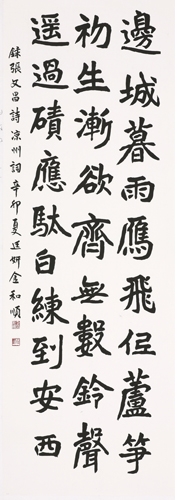 邊城暮雨鴈飛低蘆笋
初生漸欲齊無數鈴聲
遥過磧應馱白練到安西
錄張文昌詩凉州詞辛卯夏妍金和順